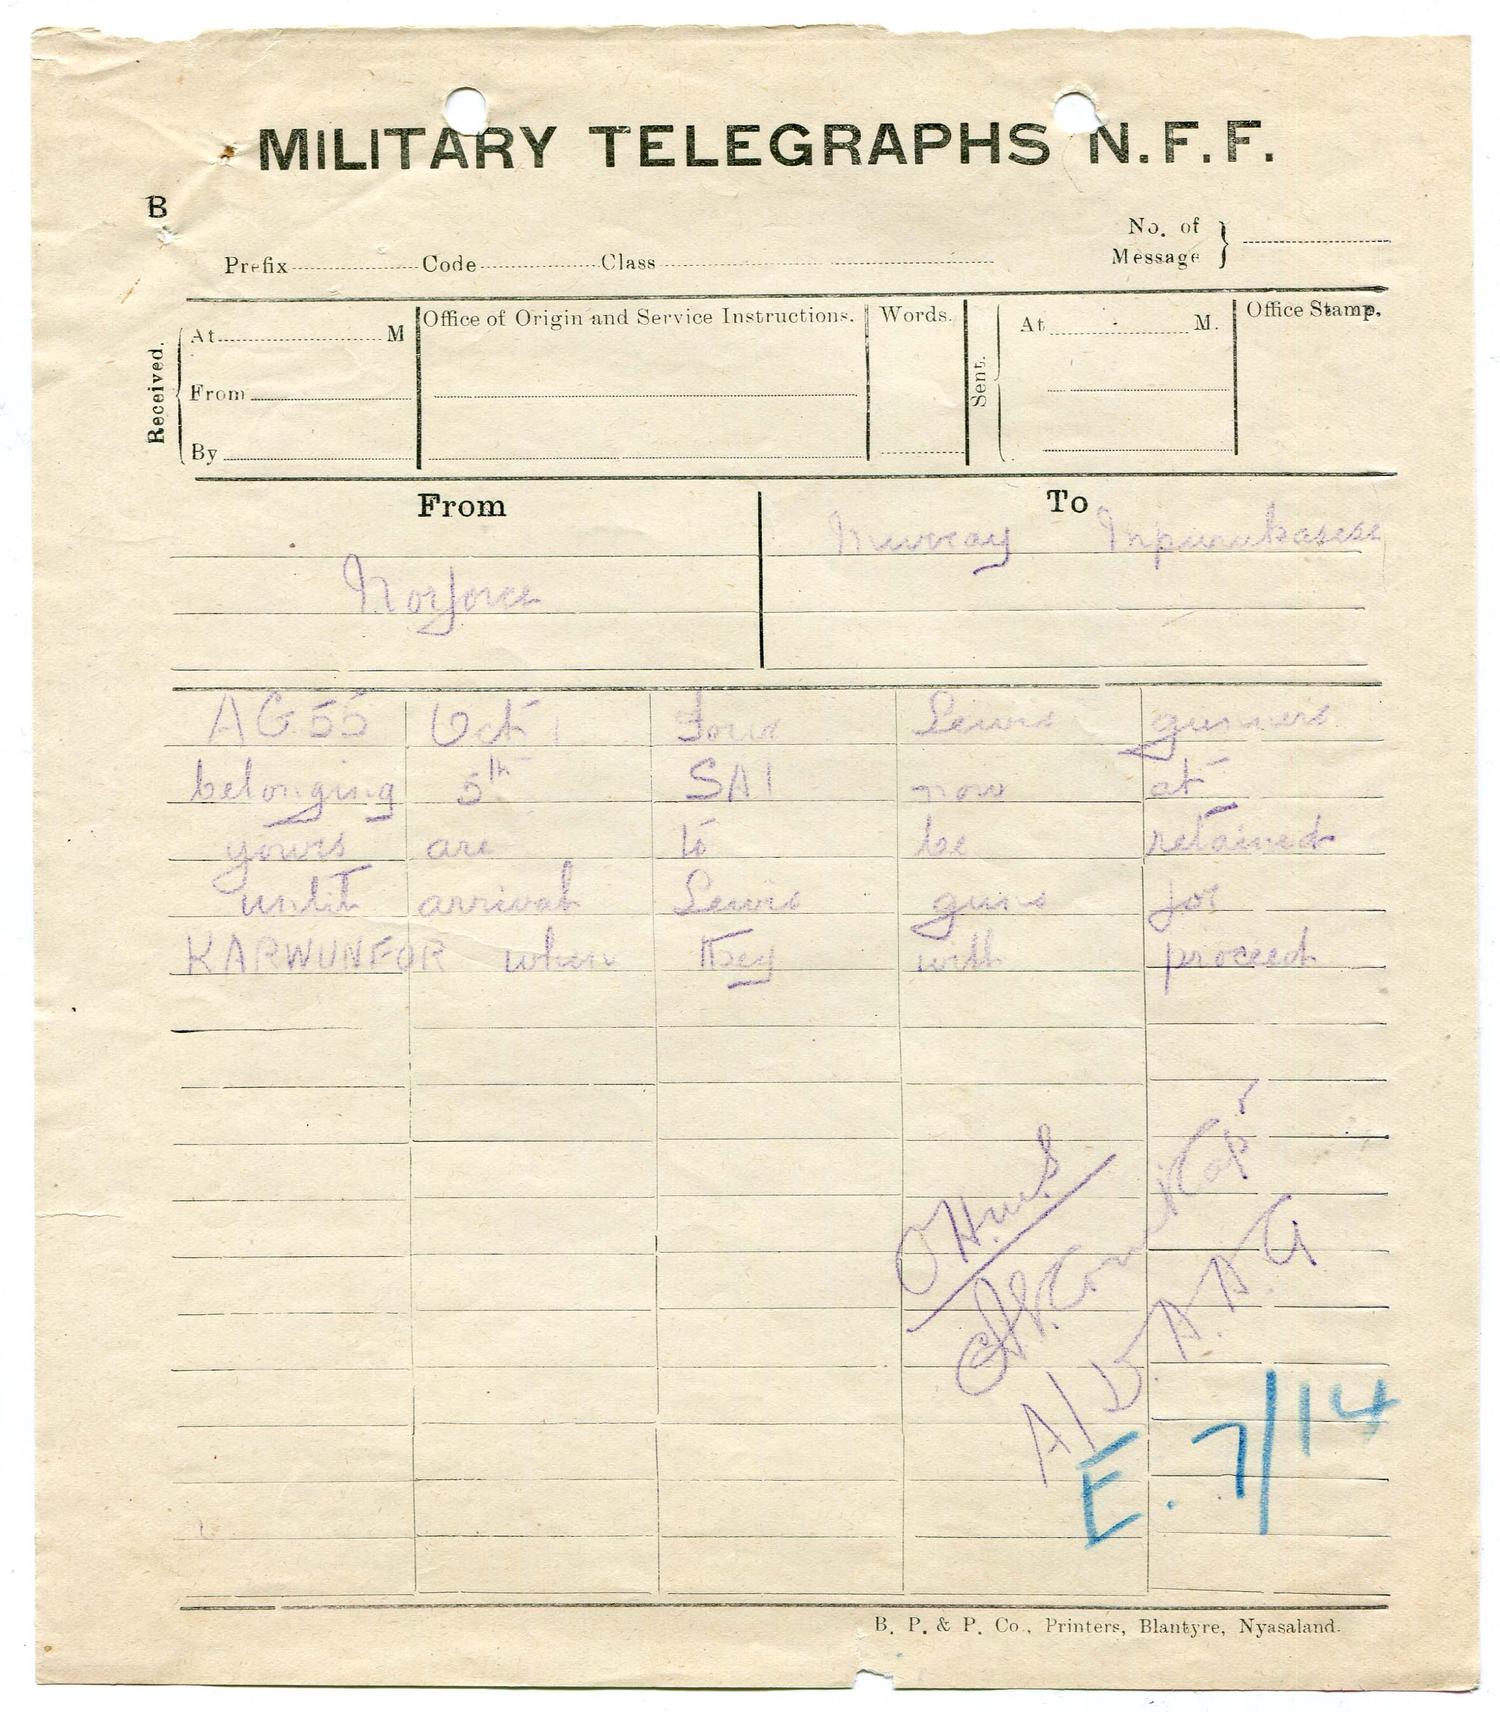 MILITARY TELEGRAPHS N.F.F.
B
No. of
Message
Prefix Code Class
Received.
At M
From
By
Office of Origin and Service Instructions.
Words.
Sent.
At M.
Office Stamp.
From
To
Murray
Norforce
AG 55 Oct 1 Four Lewis gunners
belonging 5th SAI now at
yours are to be retained
until arrival Lewis guns for
KARWUNFOR when they with proceed
OHMS
Capt
A/D.A.A.G
E. 7/14
B. P. & P. Co., Printers, Blantyre, Nyasaland.